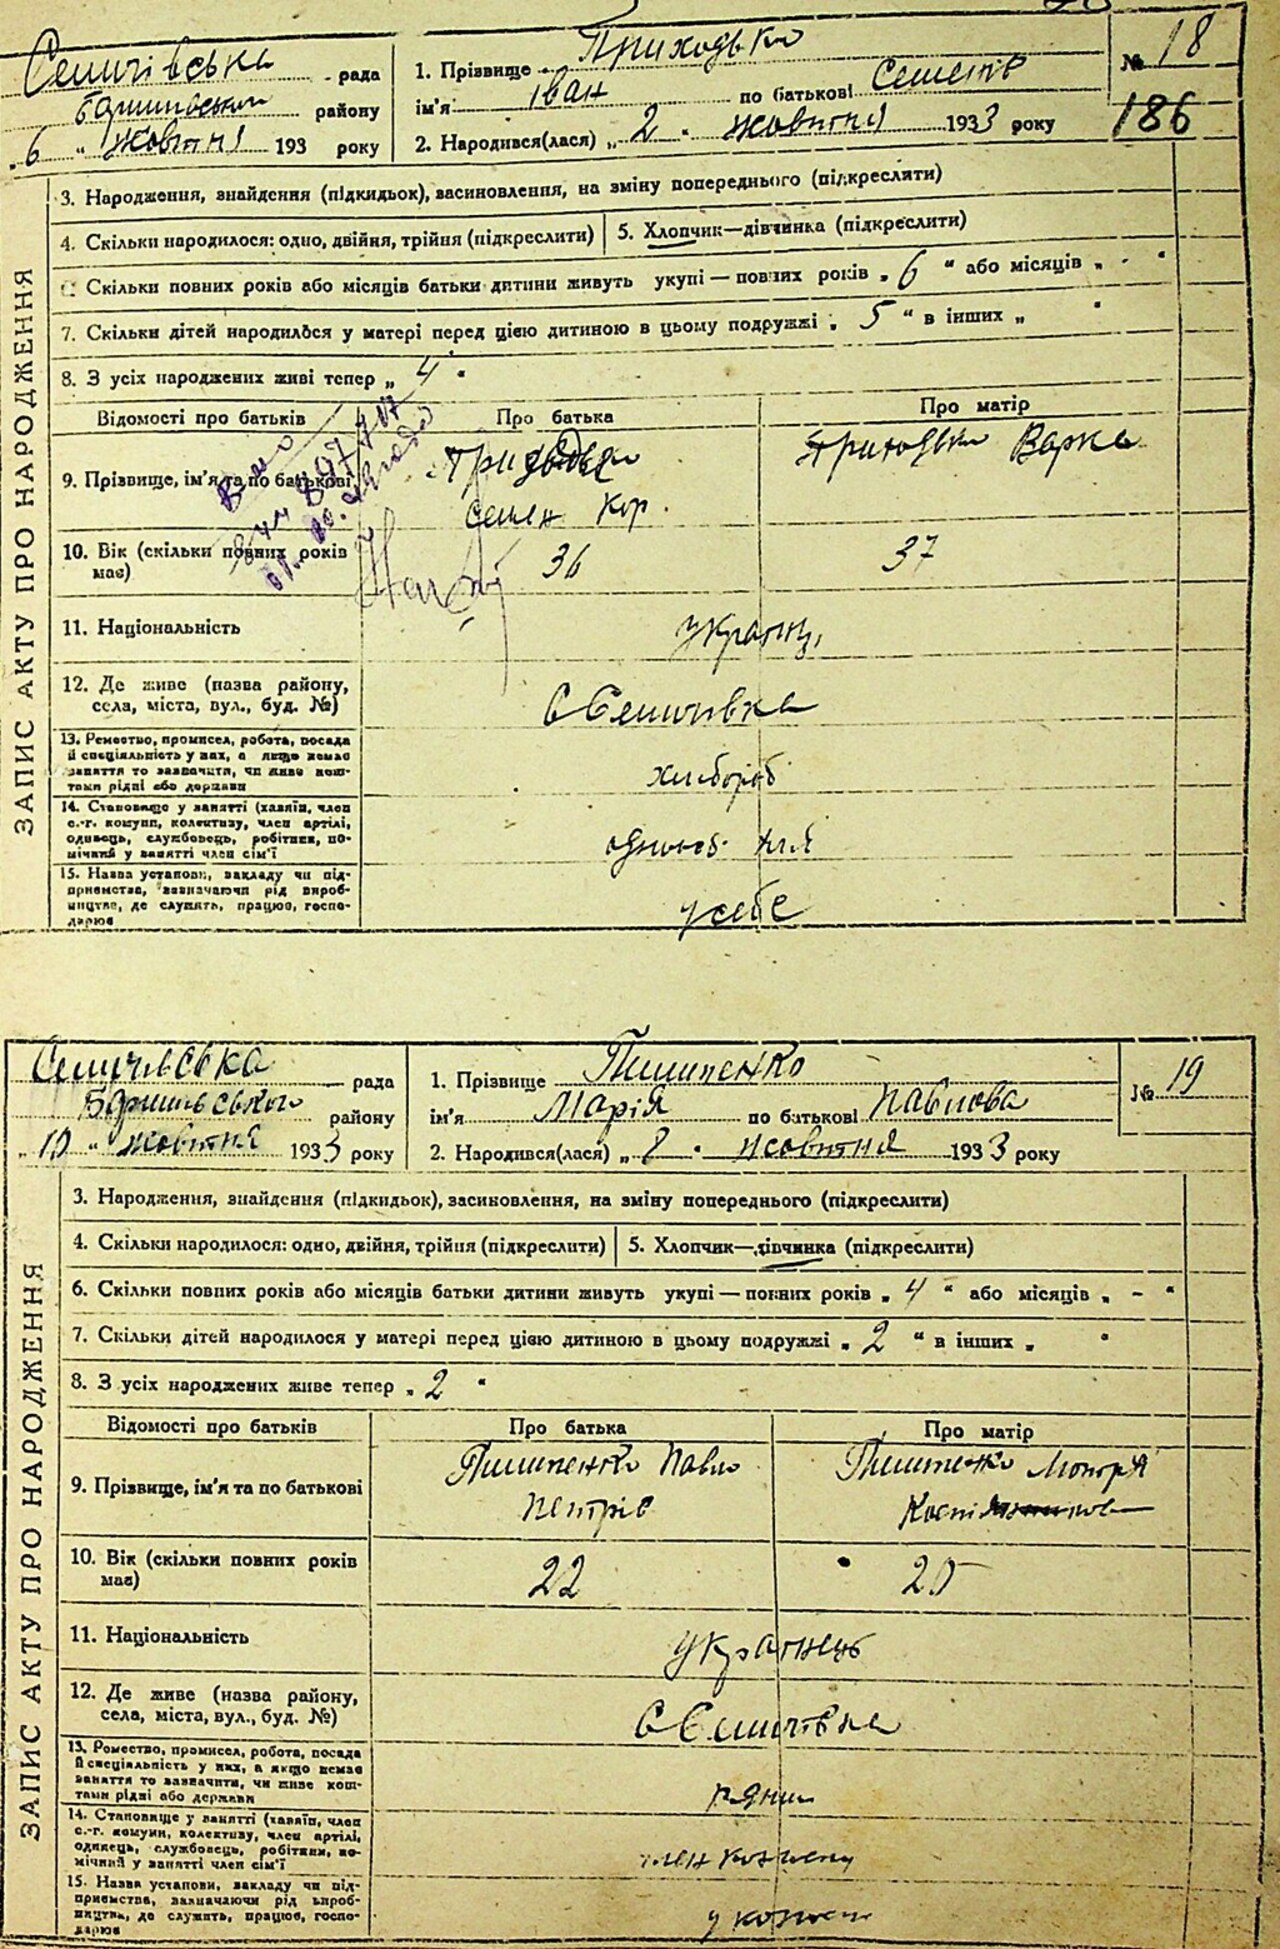 Селичівська рада
Баришівського району
„6“ жовтня 193 року
1. Прізвище Приходько
ім'я Іван по батькові Семенів
2. Народився(лася) „2“ жовтня 1933 року
№ 18
186
ЗАПИС АКТУ ПРО НАРОДЖЕННЯ
3. Народження, знайдення (підкидьок), засиновлення, на зміну попереднього (підкреслити)
4. Скільки народилося: одно, двійня, трійня (підкреслити)
5. Хлопчик—дівчинка (підкреслити)
Скільки повних років або місяців батьки дитини живуть укупі — повних років „6“ або місяців „-“
7. Скільки дітей народилося у матері перед цією дитиною в цьому подружжі „5“ в інших „ “
8. З усіх народжених живі тепер „4“
Відомості про батьків
Про батька
Про матір
9. Прізвище, ім'я та по батькові
Приходько
Семен Кор.
Приходько Варка
10. Вік (скільки повних років має)
36
37
11. Національність
українц.
12. Де живе (назва району,
села, міста, вул., буд. №)
с Селичівка
13. Ремество, промисел, робота, посада
й спеціальність у них, а якщо немає
заняття то зазначити, чи живе кош-
тами рідні або держави
хлібороб
14. Становище у занятті (хазяїн, член
с.-г. комуни, колективу, член артілі,
одинець, службовець, робітник, по-
мічний у занятті член сім'ї
15. Назва установи, закладу чи під-
приємства, зазначаючи рід вироб-
ництва, де служить, працює, госпо-
дарює
у себе
Селичівська рада
Баришівського району
„10“ жовтня 1933 року
1. Прізвище Пилипенко
ім'я Марія по батькові Павлова
2. Народився(лася) „8“ жовтня 1933 року
№ 19
ЗАПИС АКТУ ПРО НАРОДЖЕННЯ
3. Народження, знайдення (підкидьок), засиновлення, на зміну попереднього (підкреслити)
4. Скільки народилося: одно, двійня, трійня (підкреслити)
5. Хлопчик—дівчинка (підкреслити)
6. Скільки повних років або місяців батьки дитини живуть укупі — повних років „4“ або місяців „-“
7. Скільки дітей народилося у матері перед цією дитиною в цьому подружжі „2“ в інших „ “
8. З усіх народжених живе тепер „2“
Відомості про батьків
Про батька
Про матір
9. Прізвище, ім'я та по батькові
Пилипенко Павло
Петрів
Пилипенко Мотря
10. Вік (скільки повних років має)
22
25
11. Національність
українець
12. Де живе (назва району,
села, міста, вул., буд. №)
с Селичівка
13. Ремество, промисел, робота, посада
й спеціальність у них, а якщо немає
заняття то зазначити, чи живе кош-
тами рідні або держави
14. Становище у занятті (хазяїн, член
с.-г. комуни, колективу, член артілі,
одинець, службовець, робітник, по-
мічний у занятті член сім'ї
член колгоспу
15. Назва установи, закладу чи під-
приємства, зазначаючи рід вироб-
ництва, де служить, працює, госпо-
дарює
у колгоспі